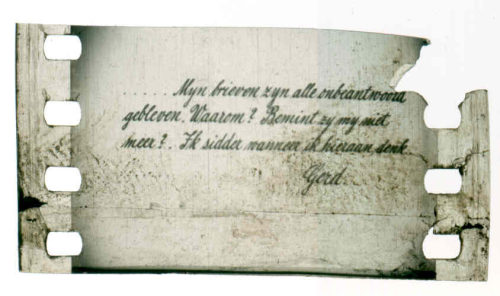 ..... Myn brieven zyn alle onbeantwoord
gebleven. Waarom? Bemint zy my niet
meer?. Ik sidder wanneer ik hieraan denk
Gerd.